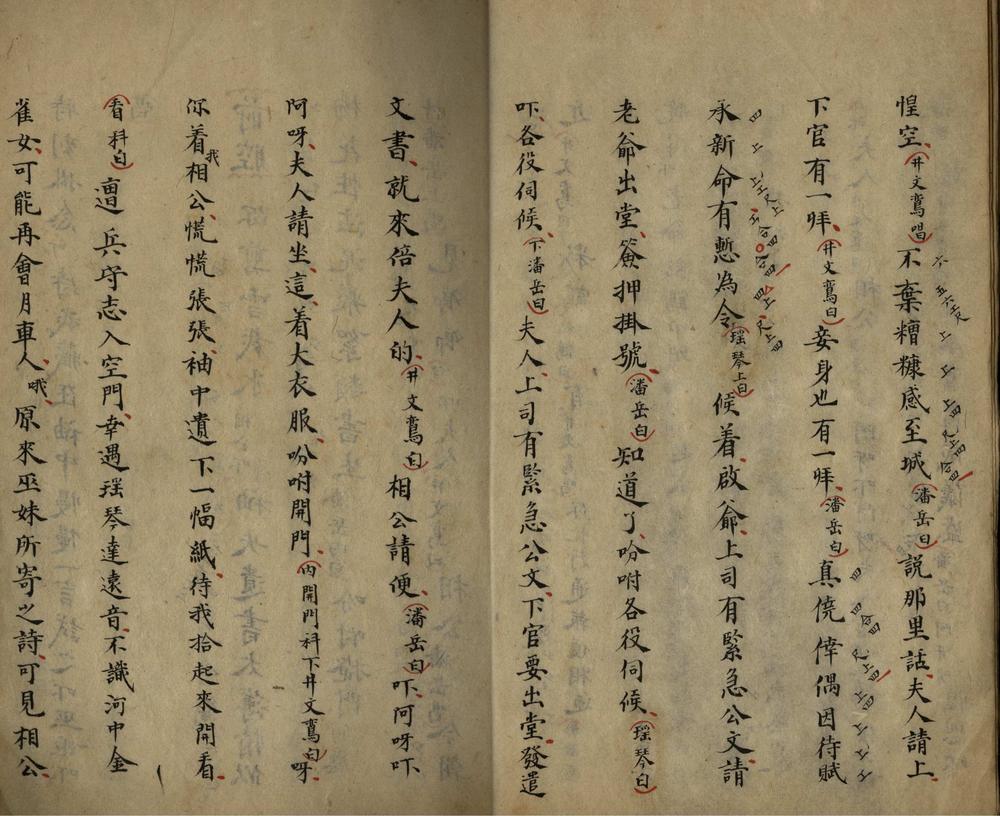 惶空（井文鸞唱）不棄糟糠感至城（潘岳白）說那里話夫人請上
下官有一拜（井文鸞白）妾身也有一拜（潘岳白）真僥倖偶因待賦
承新命有慙為令（瑶琴上白）候着啟爺上司有緊急公文請
老爺出堂簽押掛號（潘岳白）知道了吩咐各役伺候（瑶琴白）
吓各役伺候（下潘岳白）夫人上司有緊急公文下官要出堂發遣
文書就來倍夫人的（井文鸞白）相公請便（潘岳白）吓阿呀吓
阿呀夫人請坐這着大衣服吩咐開門（內開門科下井文鸞白）呀
你看我相公慌慌張張袖中遺下一幅紙待我拾起來開看
（看科白）亶兵守志入空門幸遇瑶琴達遠音不識河中金
雀女可能再會月車人哦原來巫妹所寄之詩可見相公